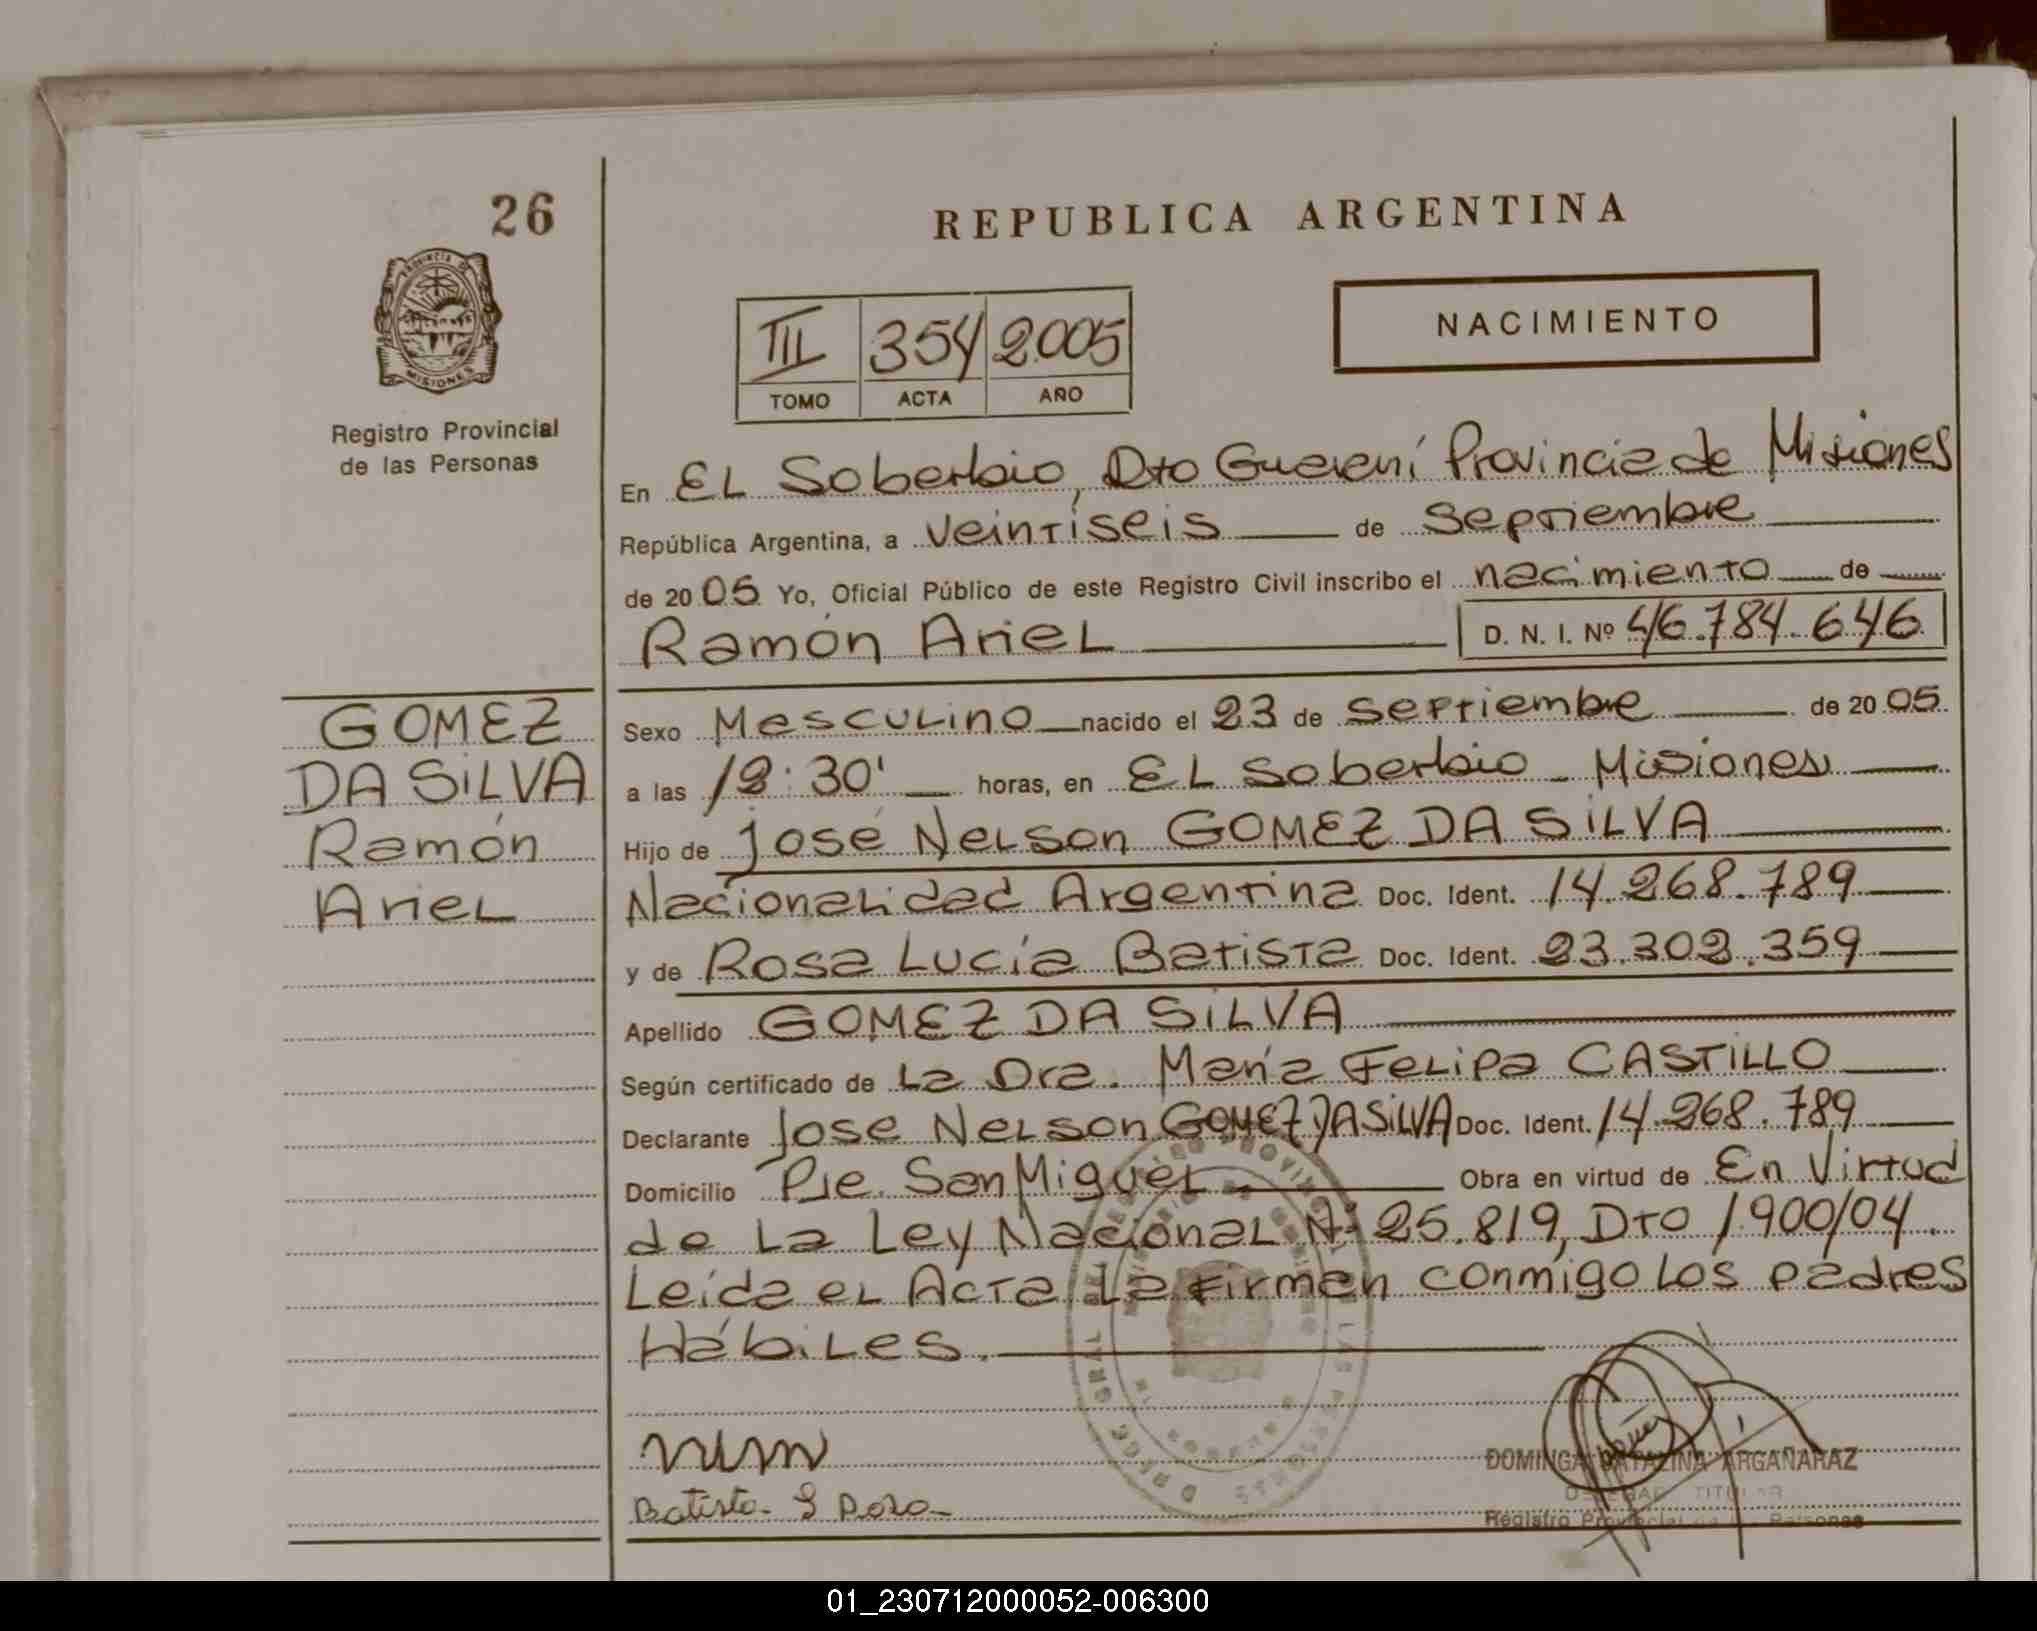 26
REPUBLICA ARGENTINA
PROVINCIA DE
MISIONES
Registro Provincial
de las Personas
NACIMIENTO
III 354 2005
TOMO ACTA AÑO
En EL Soberbio, Dto Guaraní Provincia de Misiones
República Argentina, a veintiseis de septiembre
de 2005 Yo, Oficial Público de este Registro Civil inscribo el nacimiento de
Ramón Ariel D. N. I. Nº 46.784.646
GOMEZ
DA SILVA
Ramón
Ariel
Sexo Masculino nacido el 23 de septiembre de 2005
a las 12:30' horas, en EL Soberbio - Misiones
Hijo de José Nelson GOMEZ DA SILVA
Nacionalidad Argentina Doc. Ident. 14.268.789
y de Rosa Lucía Batista Doc. Ident. 23.302.359
Apellido GOMEZ DA SILVA
Según certificado de La Dra. María Felipa CASTILLO
Declarante Jose Nelson GOMEZ DA SILVA Doc. Ident. 14.268.789
Domicilio Pje. San Miguel. Obra en virtud de En Virtud
de La Ley Nacional Nº 25.819, Dto 1.900/04.
Leída el Acta La firman conmigo los padres
Hábiles.
Batista
DOMINGA CATALINA ARGAÑARAZ
DELEGADA TITULAR
Registro Provincial de las Personas
01_230712000052-006300